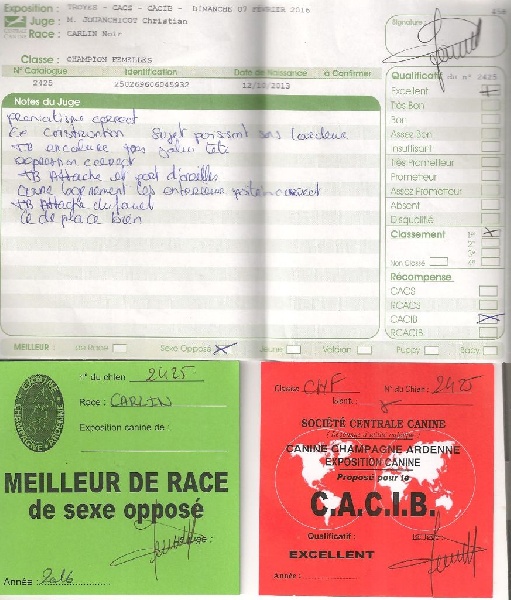 Exposition : TROYES - CACS - CACIB - DIMANCHE 07 FEVRIER 2016
Juge : M. JOUANCHICOT Christian
Race : CARLIN Noir
Signature :
Classe : CHAMPION FEMELLES
N° Catalogue Identification Date de Naissance à Confirmer
2425 250269606945932 12/10/2013
Qualificatif du n° 2425
Excellent
Très Bon
Bon
Assez Bon
Insuffisant
Très Prometteur
Prometteur
Assez Prometteur
Absent
Disqualifié
Classement 1er
2e
3e
Non Classé 4e
Récompense
CACS
RCACS
CACIB
RCACIB
Notes du Juge
correct
construction Sujet puissant sans lourdeur
TB encolure jolie tête
expression correct
TB Attache et port d'oreilles
correct
TB Attache du fouet
Se déplace bien
MEILLEUR : de Race Sexe Opposé Jeune Vétéran Puppy Baby
n° du chien : 2425
Race : CARLIN
Exposition canine de :
MEILLEUR DE RACE
de sexe opposé
Année : 2016
Classe : CHF N° du Chien : 2425
SOCIÉTÉ CENTRALE CANINE
CANINE CHAMPAGNE ARDENNE
EXPOSITION CANINE
Proposé pour le
C.A.C.I.B.
Qualificatif :
EXCELLENT
Année :